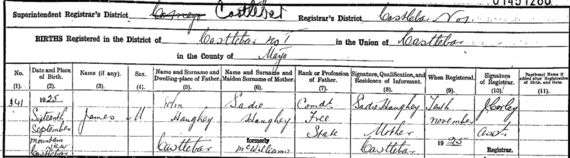 01451280
Superintendent Registrar's District Castlebar Registrar's District Castlebar No 1
BIRTHS Registered in the District of Castlebar No 1 in the Union of Castlebar
in the County of Mayo
No. Date and Place of Birth. Name (if any). Sex. Name and Surname and Dwelling-place of Father. Name and Surname and Maiden Surname of Mother. Rank or Profession of Father. Signature, Qualification, and Residence of Informant. When Registered. Signature of Registrar. Baptismal Name if added after Registration of Birth, and Date.
(1.) (2.) (3.) (4.) (5.) (6.) (7.) (8.) (9.) (10.) (11.)
341 1925 John Sadie Comdt. Sadie Haughey Tenth J Corley
Sixteenth James M Haughey Haughey Free November
September State Mother Asst.
mountain view formerly 1925
Castlebar Castlebar McWilliams Castlebar Registrar.